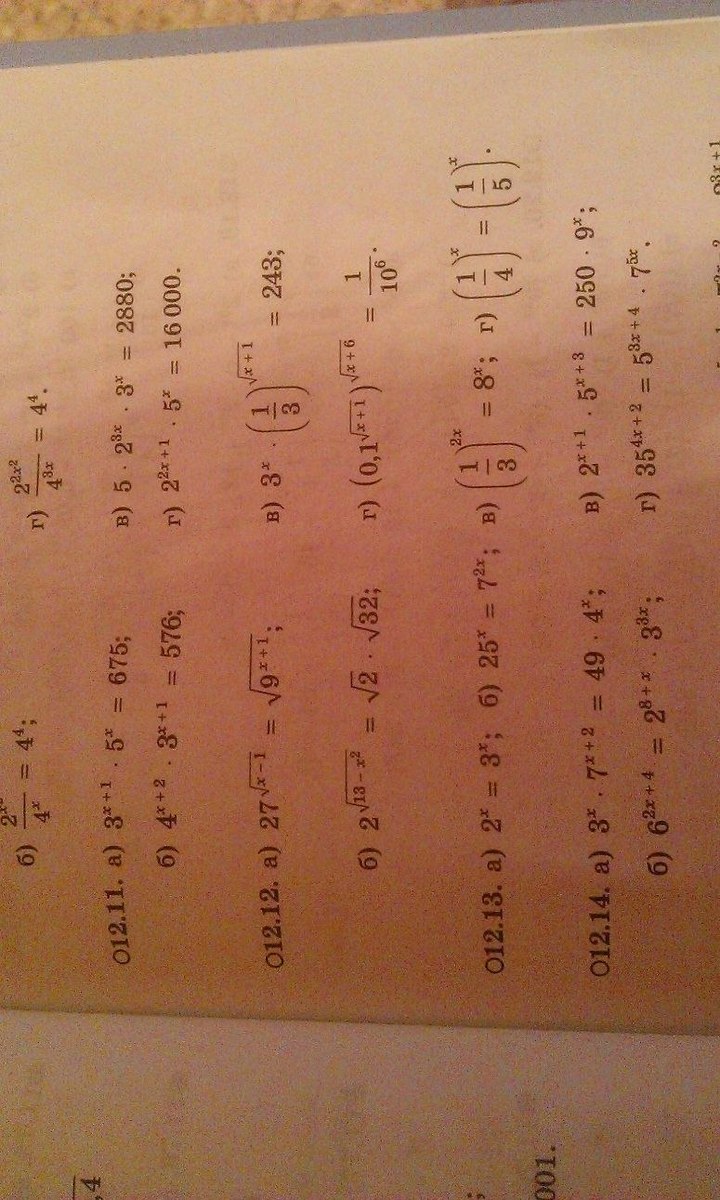 б) 2^{x²}/4^x = 4⁴; г) 2^{2x²}/4^{3x} = 4⁴.
O12.11. а) 3^{x+1} · 5^x = 675; в) 5 · 2^{3x} · 3^x = 2880;
б) 4^{x+2} · 3^{x+1} = 576; г) 2^{2x+1} · 5^x = 16 000.
O12.12. а) 27^{√(x−1)} = √(9^{x+1}); в) 3^x · (1/3)^{√(x+1)} = 243;
б) 2^{√(13−x²)} = √2 · √32; г) (0,1^{√(x+1)})^{√(x+6)} = 1/10⁶.
O12.13. а) 2^x = 3^x; б) 25^x = 7^{2x}; в) (1/3)^{2x} = 8^x; г) (1/4)^x = (1/5)^x.
O12.14. а) 3^x · 7^{x+2} = 49 · 4^x; в) 2^{x+1} · 5^{x+3} = 250 · 9^x;
б) 6^{2x+4} = 2^{8+x} · 3^{3x}; г) 35^{4x+2} = 5^{3x+4} · 7^{5x}.
001.